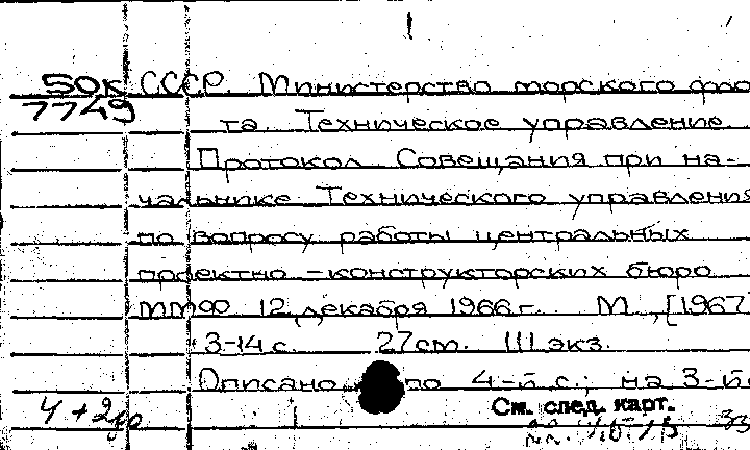 50к СССР. Министерство морского фло-
7749
та. Техническое управление.
Протокол Совещания при на-
чальнике Технического управления
по вопросу работы центральных
проектно-конструкторских бюро
ММФ 12 декабря 1966 г. М., [1967
3-14 с. 27 cm. III экз.
Описано по 4-й с.; на 3-й
4+2др
См. след. карт.